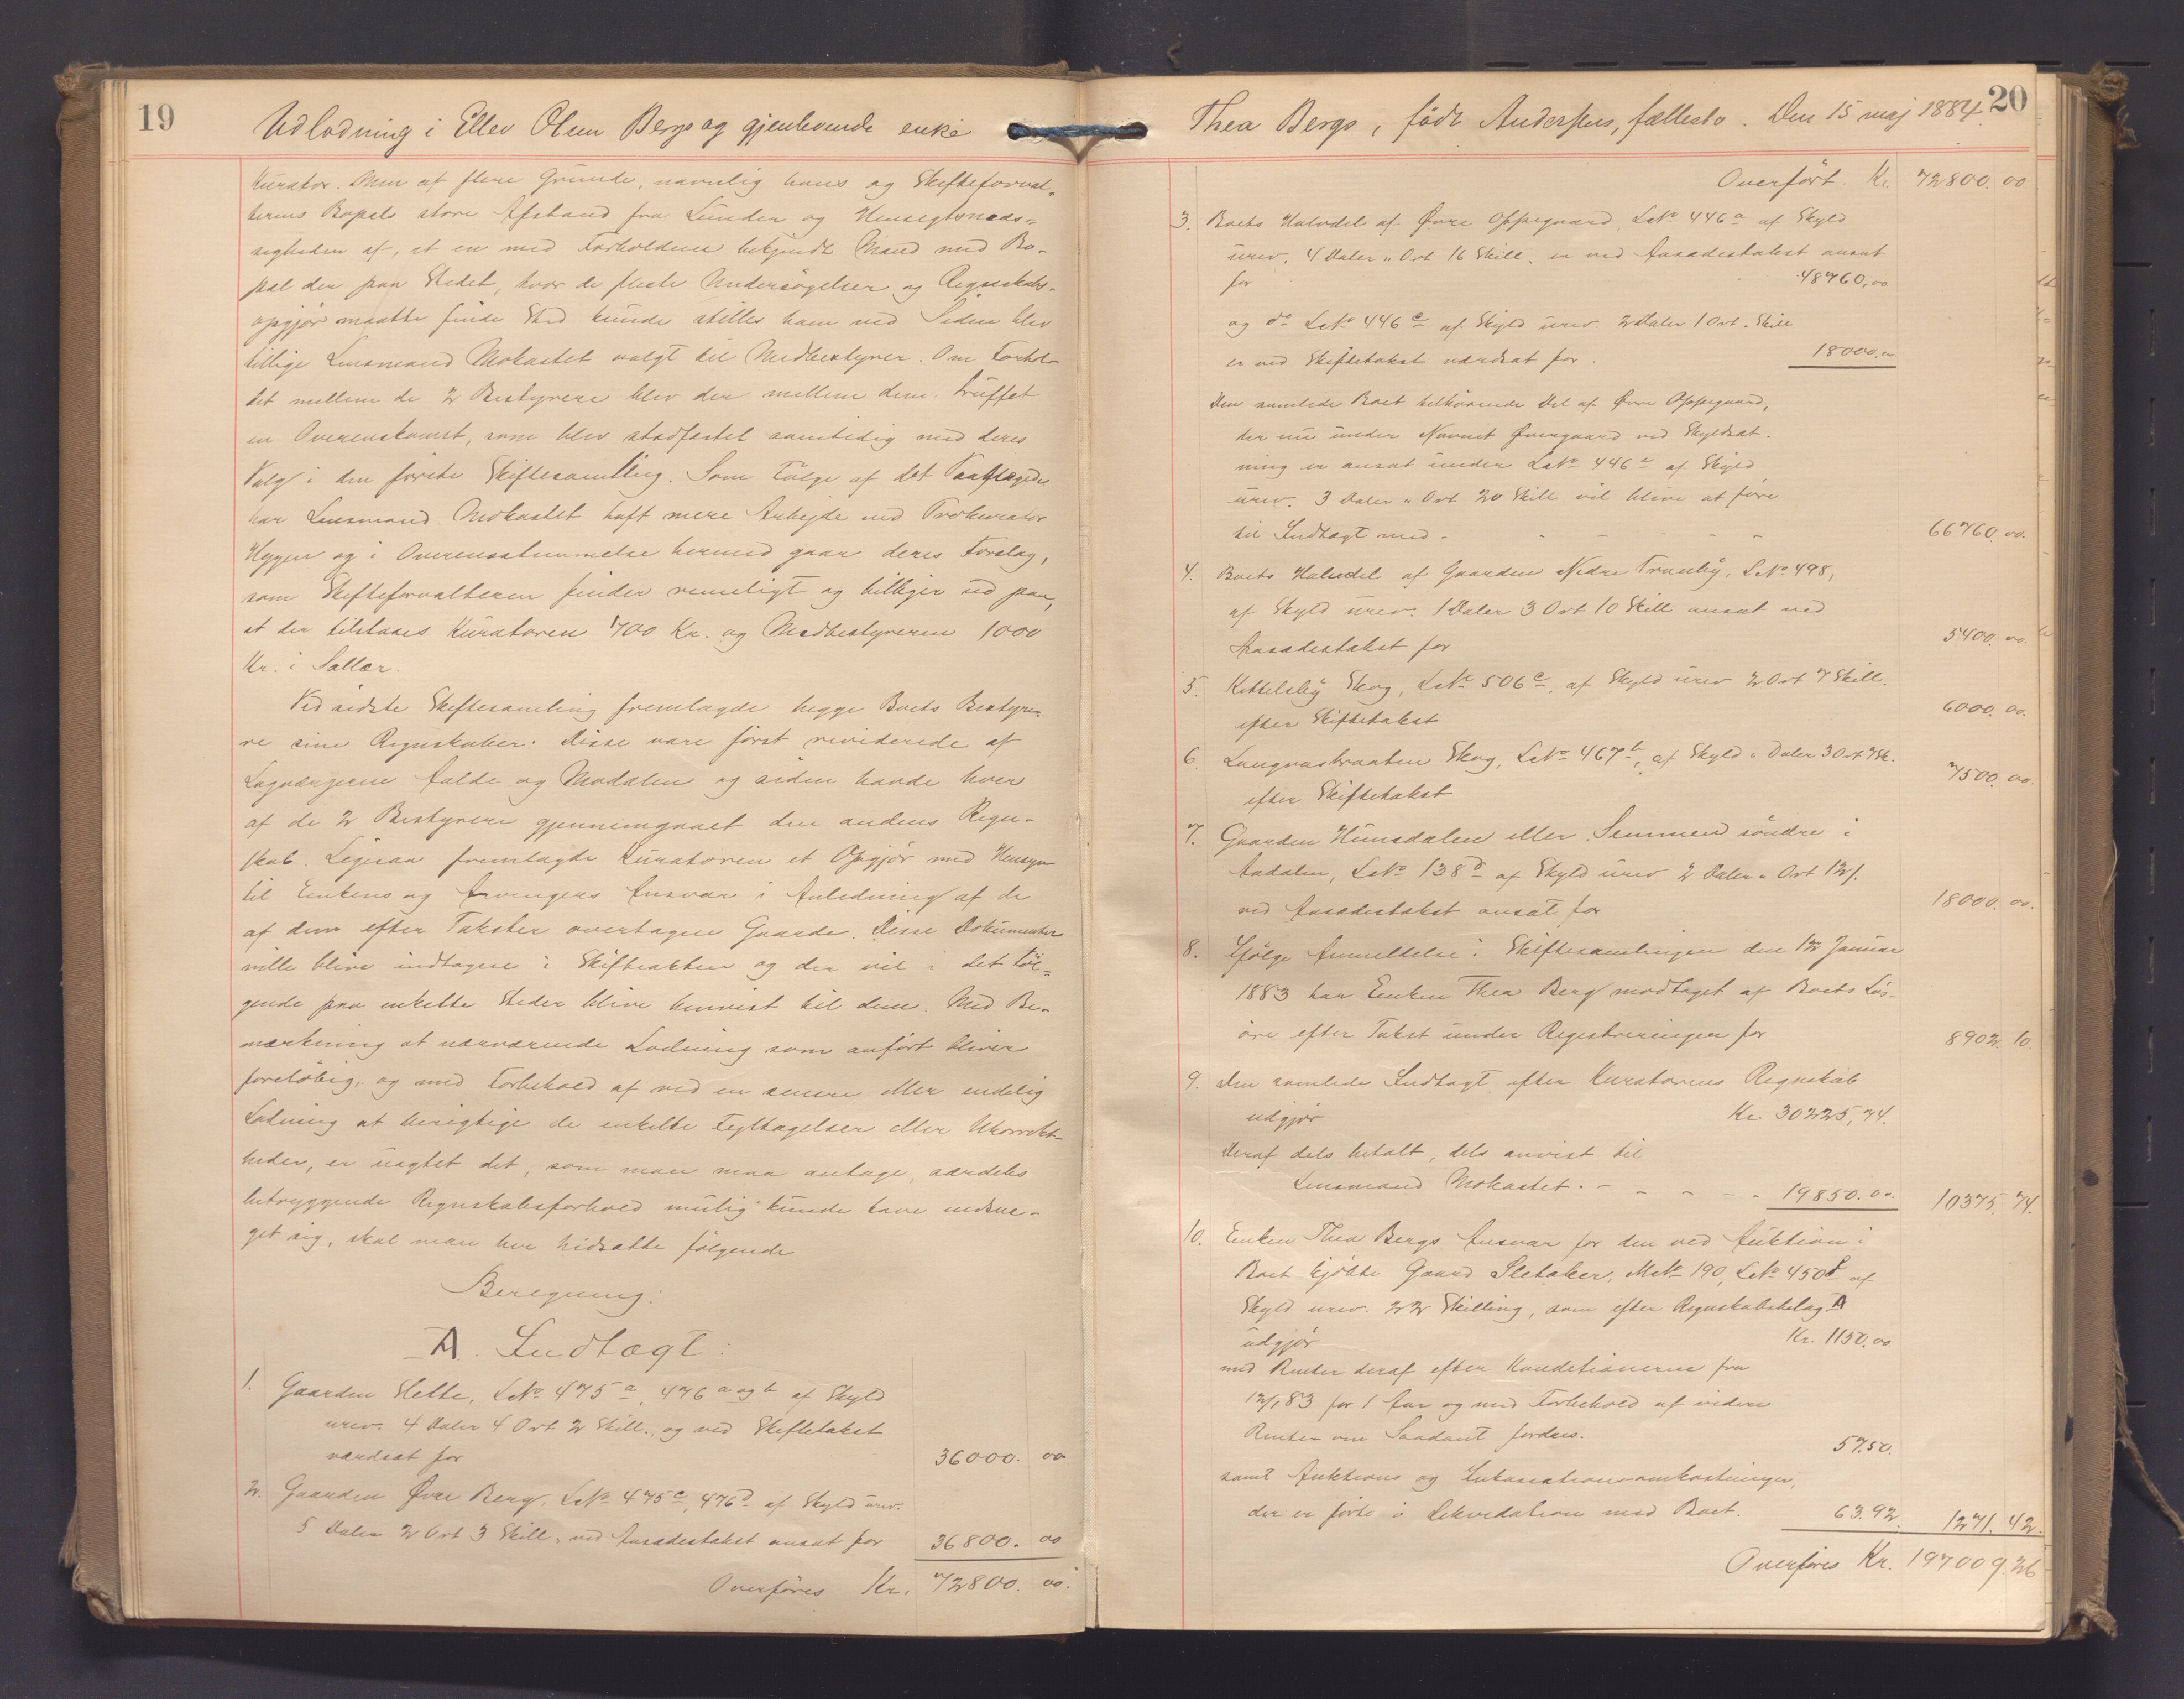 19
Udlodning i Ellev Olsen Bergs og gjenlevende enke
Kurator. Men af flere Grunde, navnlig hans og Skifteforval-
terens Bopæls store Afstand fra Lunder og Hensigtsmæs-
sigheden af, at en med Forholdene bekjendt Mand med Bo-
pæl der paa Stedet, hvor de fleste Undersøgelser og Regnskabs-
opgjør maatte finde Sted kunde stilles ham ved Siden blev
tillige Lensmand Mokastet valgt til Medbestyrer. Om Forhol-
det mellem de 2 Bestyrere blev der mellem dem truffet
en Overenskomst, som blev stadfæstet samtidig med deres
Valg i den første Skiftesamling. Som Følge af det
har Lensmand Mokastet haft mere Arbejde end Prokurator
Hygen og i Overensstemmelse hermed gaar deres Forslag,
som Skifteforvalteren finder rimeligt og billiger ud paa,
at der tilstaaes Kuratoren 700 Kr. og Medbestyreren 1000
Kr. i Sallær.
Ved sidste Skiftesamling fremlagde begge Boets Bestyre-
re sine Regnskaber. Disse vare først reviderede af
Lagværgerne og Modalen og siden havde hver
af de 2 Bestyrere gjennemgaaet den andens Regn-
skab. Ligesaa fremlagde Kuratoren et Opgjør med Hensyn
til Enkens og Arvingers Ansvar i Anledning af de
af dem efter Takster overtagne Gaarde. Disse Dokumenter
ville blive indtagne i Skifteakten og der vil i det Føl-
gende paa enkelte Steder blive henvist til dem. Med Be-
mærkning at nærværende Lodning som anført bliver
foreløbig, og med Forbehold af ved en senere eller endelig
Lodning at berigtige de enkelte Fejltagelser eller Ukorrekt-
heder, er uagtet det, som man maa antage, særdeles
betryggende Regnskabsforhold mulig kunde have indsne-
get sig, skal man her hidsætte følgende
Beregning:
A. Indtægt:
1. Gaarden Helle, LNo 475 a, 476 a og b af Skyld
urev. 4 Daler 4 Ort 2 Skill. og ved Skiftetakst
værdsat for 36000. 00
2. Gaarden Øvre Berg, LNo 475 c, 476 d af Skyld urev.
5 Daler 2 Ort 3 Skill. ved Aasædestakst ansat for 36800. 00
Overføres Kr. 72800. 00.
20
Thea Bergs, født Andersens, fællesbo. Den 15 maj 1884.
Overført Kr. 72800. 00
3. Boets Halvdel af Øvre Oppegaard, LNo 446 a af Skyld
urev. 4 Daler " Ort 16 Skill. er ved Aasædestakst ansat
for 48760,00
og do LNo 446 c af Skyld urev. 2 Daler 1 Ort " Skill
er ved Skiftetakst værdsat for 18000.00
Den samlede Boet tilhørende Del af Øvre Oppegaard,
der nu under Navnet Øvergaard ved Skyldsæt-
ning er ansat under LNo 446 a af Skyld
urev. 3 Daler " Ort 20 Skill vil blive at føre
til Indtægt med - 66760. 00.
4. Boets Halvdel af Gaarden Nedre Tranby, LNo 498,
af Skyld urev. 1 Daler 3 Ort 10 Skill ansat ved
Aasædestakst for 5400. 00.
5. Kittelsby Skog, LNo 506 c, af Skyld urev 2 Ort 7 Skill.
efter Skiftetakst 6000. 00.
6. Skog, LNo 467 b, af Skyld " Daler 3 Ort 7 Sk.
efter Skiftetakst 7500. 00.
7. Gaarden Hunsdalen eller Semmen søndre i
Aadalen, LNo 138 d af Skyld urev 2 Daler " Ort 12 s.
ved Aasædestakst ansat for 18000. 00.
8. Ifølge Anmeldelse i Skiftesamlingen den 12 Januar
1883 har Enken Thea Berg modtaget af Boets Løs-
øre efter Takst under Registreringen for 8902. 10.
9. Den samlede Indtægt efter Kuratorens Regnskab
udgjør Kr. 30225,74.
Deraf dels betalt, dels anvist til
Lensmand Mokastet. - - - - - 19850.00. 10375. 74.
10. Enken Thea Bergs Ansvar for den ved Auktion i
Boet kjøbte Gaard Sletaker, MNo 190, LNo 450 f af
Skyld urev. 22 Skilling, som efter Regnskabsbelag A
udgjør Kr. 1150,00
med Renter deraf efter Konditionerne fra
12/1 83 for 1 Aar og med Forbehold af videre
Renter om Saadant fordres. 57.50.
samt Auktions og Inkassationsomkostninger,
der er førte i Likvidation med Boet. 63.92. 1271. 42.
Overføres Kr. 197009.26